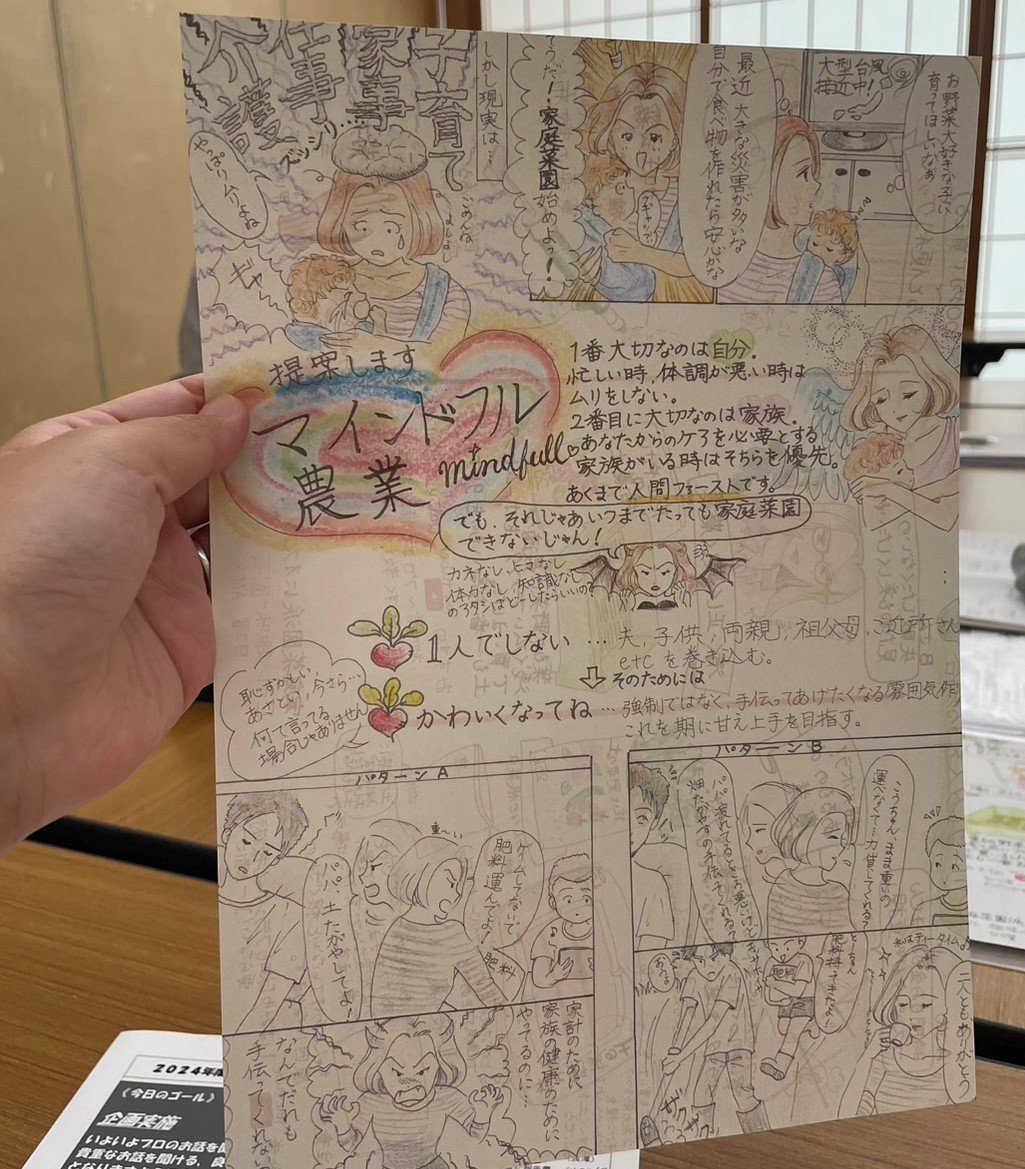 お野菜大好きな子に
育ってほしいなぁ
大型台風
接近中!
最近 大きな災害が多いな
自分で食べ物を作れたら安心かな
そうだ!家庭菜園始めよっ!
しかし現実は…
子育て
家事
仕事
介護
ズッシリ…
ごめんね
やっぱりムリよね
ギャー
提案します
マインドフル
農業
mindfull
1番大切なのは自分。
忙しい時、体調が悪い時は
ムリをしない。
2番目に大切なのは家族。
あなたからのケアを必要とする
家族がいる時はそちらを優先。
あくまで人間ファーストです。
でも、それじゃあいつまでたっても家庭菜園
できないじゃん!
カネなし、ヒマなし
体力なし、知識なし
のアタシはどーしたらいいの?
1人でしない … 夫、子供、両親、祖父母、ご近所さん
etcを巻き込む。
そのためには
かわいくなってね … 強制ではなく、手伝ってあげたくなる雰囲気作
これを期に甘え上手を目指す。
恥ずかしい
あざとい、今さら…
何て言ってる
場合じゃありません
パターンA
ゲームしてないで
肥料運んでよ!
重〜い
肥料
パパ、土たがやしてよ!
家計のために
家族の健康のために
やってるのに…
なんでだれも
手伝ってくれない
パターンB
こうちゃん、まま重いの
運べなくて…力貸してくれる?
パパ疲れてるところ悪いけど
土たがやすの手伝ってくれる?
二人ともありがとう
私はティータイム♪
肥料
ザクッ
2024年度
《今日のゴール》
企画実施
いよいよプロのお話を
貴重なお話を聞ける、良
となります